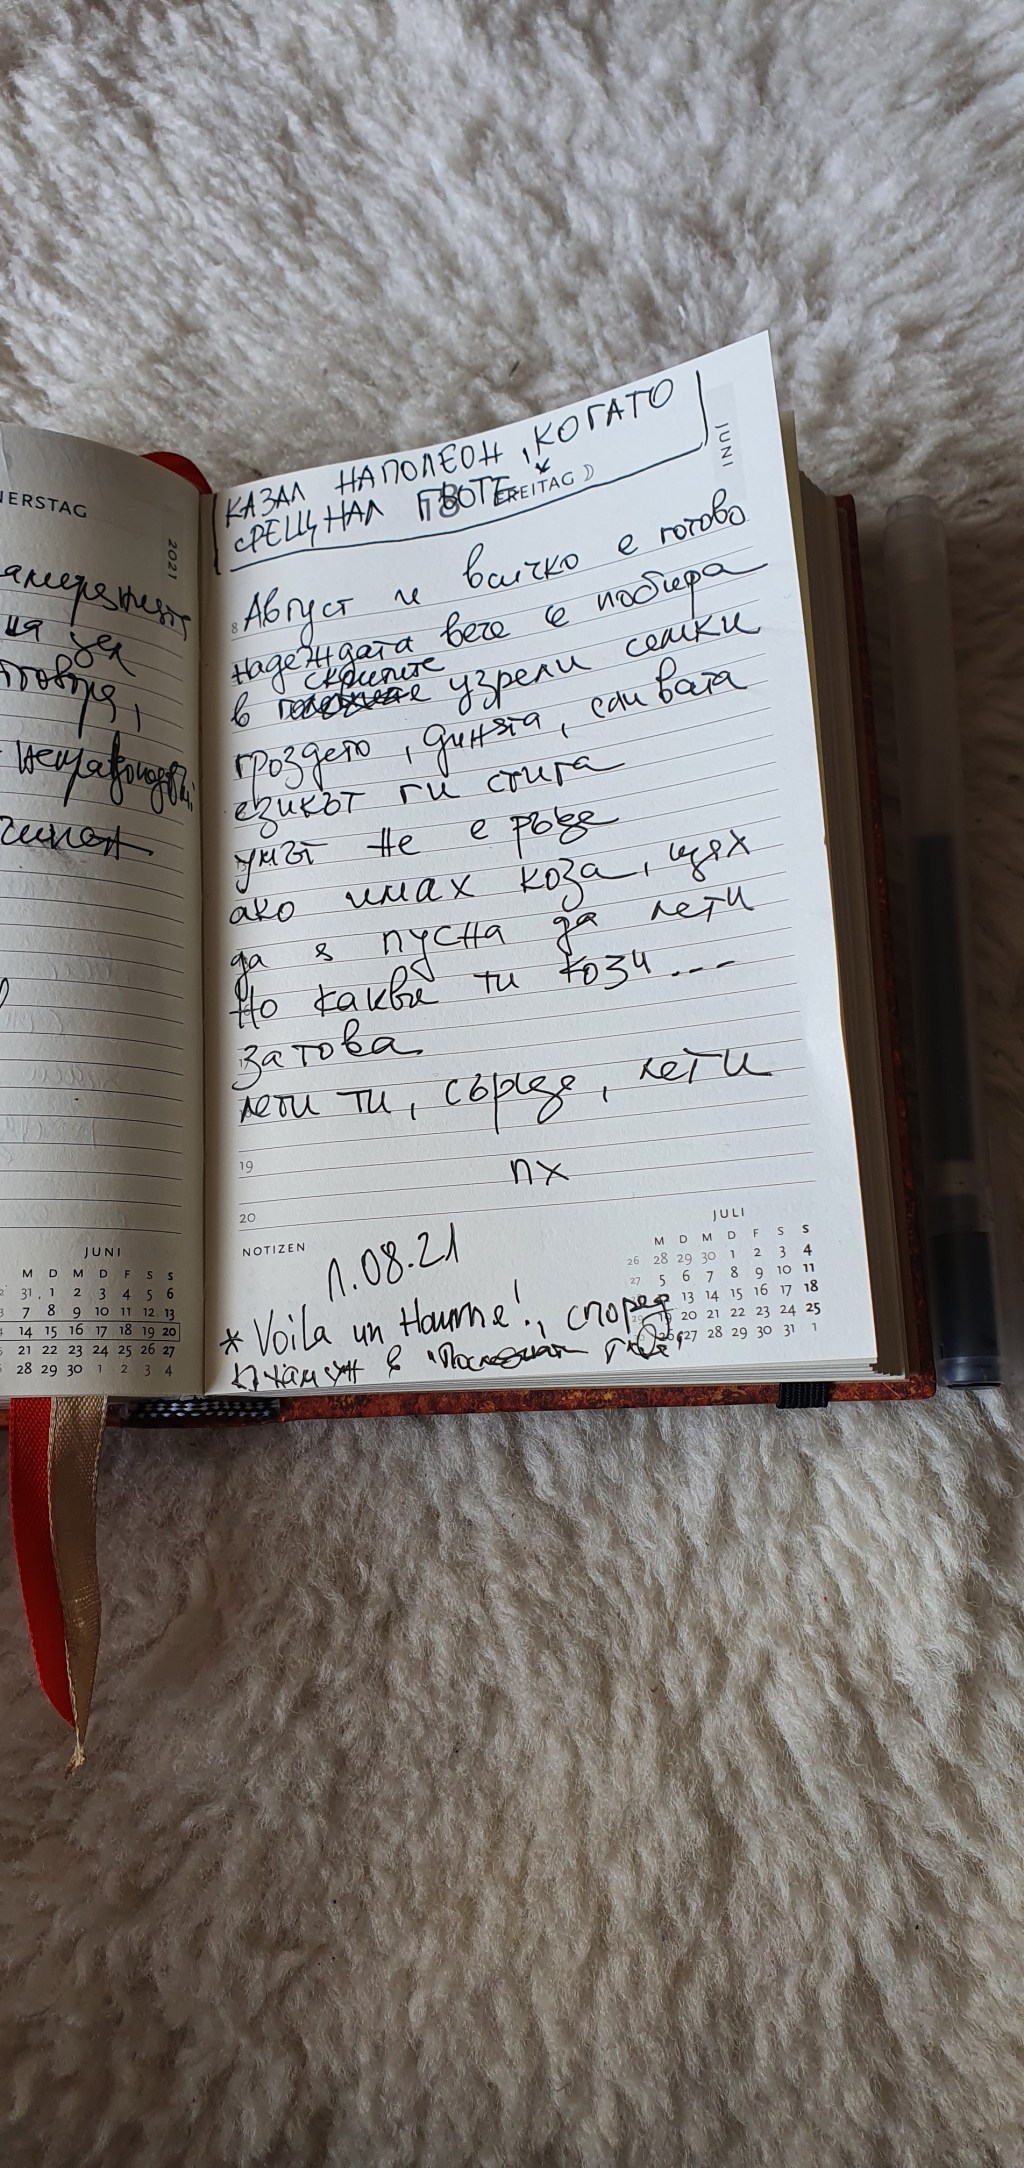 NERSTAG
2021
на
JUNI
M D M D F S S
31 1 2 3 4 5 6
7 8 9 10 11 12 13
14 15 16 17 18 19 20
21 22 23 24 25 26 27
28 29 30 1 2 3 4
КАЗАЛ НАПОЛЕОН, КОГАТО
СРЕЩНАЛ ГЬОТЕ*
18 FREITAG
JUNI
8 Август и всичко е готово
надеждата вече е побира
скритите
в узрели семки
гроздето, динята, сливата
езикът ги стига
умът не е ръже
ако имах коза, щях
да я пусна да лети
Но какви ти кози ---
затова
лети ти, сърце, лети
19
пх
20
NOTIZEN
1.08.21
JULI
M D M D F S S
26 28 29 30 1 2 3 4
27 5 6 7 8 9 10 11
12 13 14 15 16 17 18
19 20 21 22 23 24 25
26 27 28 29 30 31 1
* Voila un Homme!, според
в "Последната